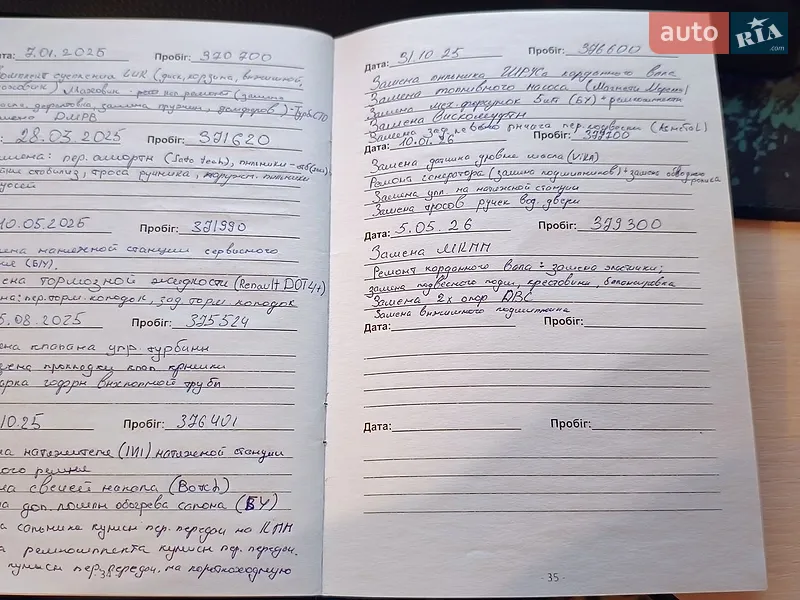 та: 7.01.2025 Пробіг: 370 700
сцепления LUK (диск, корзина, выжимной,
Маховик -
ДМРВ
28.03.2025 Пробіг: 371620
мена: пер. аморты (Sato tech),
стобилиз, троса ручника,
10.05.2025 Пробіг: 371990
ена натяжной станции сервисного
(Б/У).
ена тормозной жидкости (Renault DOT4+)
на: пер. торм. колодок, зад. торм. колодок
5.08.2025 Пробіг: 375524
ена клапана упр. турбины
ена прокладки клап крышки
арка гофры выхлопной трубы
10.25 Пробіг: 376401
на натяжителя (INA) натяжной станции
ого ремня
на свечей накала (Bosch)
на доп. помпы обогрева салона (БУ)
а сальника кулисы пер. передач на КПП
а ремкомплекта кулисы пер. передач.
кулисы пер. передач. на короткоходную
34
Дата: 31.10 25 Пробіг: 376600
Замена пыльника ШРУСа карданного вала
Замена топливного насоса (Магнети Марели)
Замена мет. форсунок 5шт (БУ) +
Замена вискомуфты
Замена зад. рычага пер. подвески (Asmetal)
Дата: 10.01.26 Пробіг: 379700
Замена датчика уровня масла (VIKA)
Ремонт генератора (замена подшипников) + замена обводного ролика
Замена упл. на натяжной станции
Замена тросов ручек вод. двери
Дата: 5.05.26 Пробіг: 379300
Замена МКПП
Ремонт карданного вала: замена эластички;
замена подвесного подш, крестовины, балансировка
Замена 2х опор ДВС
Замена выжимного подшипника
Дата: Пробіг:
Дата: Пробіг:
- 35 -
auto RIA .com